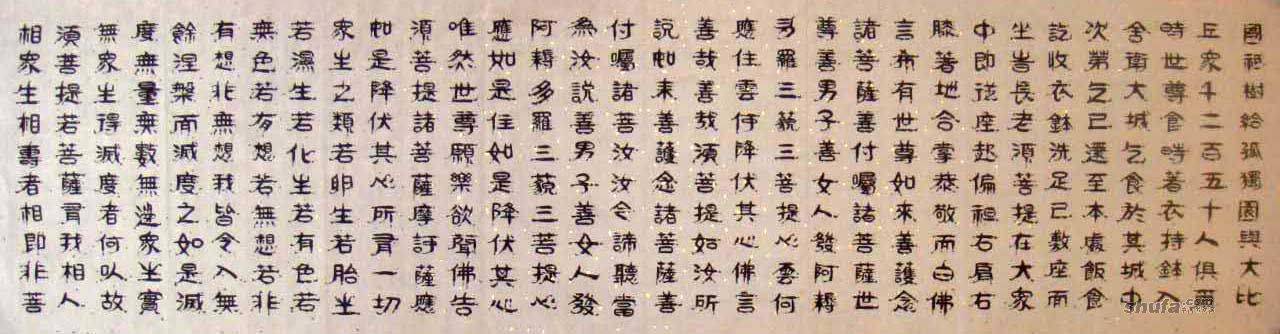 國祇樹給孤獨園與大比
丘眾千二百五十人俱爾
時世尊食時著衣持鉢入
舍衛大城乞食於其城中
次第乞已還至本處飯食
訖收衣鉢洗足已敷座而
坐旹長老須菩提在大眾
中即從座起偏袒右肩右
膝著地合掌恭敬而白佛
言希有世尊如來善護念
諸菩薩善付囑諸菩薩世
尊善男子善女人發阿耨
多羅三藐三菩提心雲何
應住雲何降伏其心佛言
善哉善哉須菩提如汝所
說如來善護念諸菩薩善
付囑諸菩汝汝今諦聽當
為汝說善男子善女人發
阿耨多羅三藐三菩提心
應如是住如是降伏其心
唯然世尊願樂欲聞佛告
須菩提諸菩薩摩訶薩應
如是降伏其心所有一切
眾生之類若卵生若胎生
若濕生若化生若有色若
無色若有想若無想若非
有想非無想我皆令入無
餘涅槃而滅度之如是滅
度無量無數無邊眾生實
無眾生得滅度者何以故
須菩提若菩薩有我相人
相眾生相壽者相即非菩
shufa